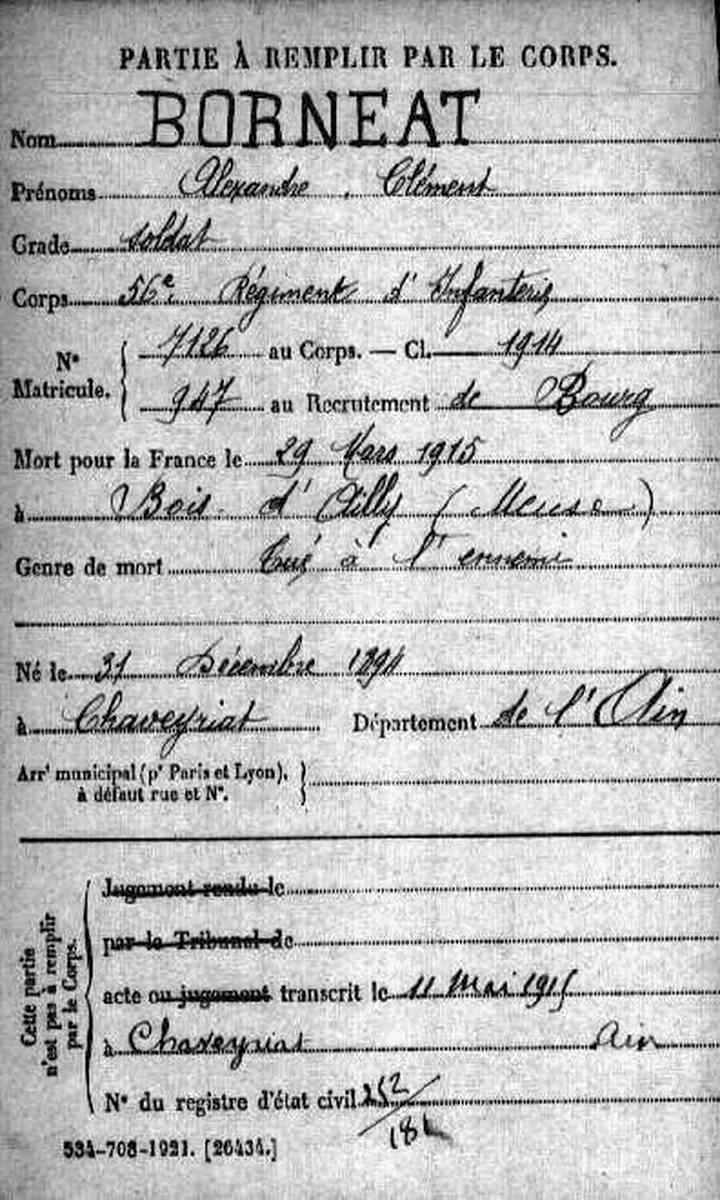 PARTIE À REMPLIR PAR LE CORPS.
Nom BORNEAT
Prénoms Alexandre, Clément
Grade soldat
Corps 56e Régiment d'Infanterie
N° Matricule. 7126 au Corps. — Cl. 1914
947 au Recrutement de Bourg
Mort pour la France le 29 Mars 1915
à Bois d'Ailly (Meuse)
Genre de mort Tué à l'ennemi
Né le 31 Décembre 1894
à Chaveyriat Département de l'Ain
Arrt municipal (pr Paris et Lyon),
à défaut rue et N°.
Cette partie n'est pas à remplir par le Corps.
Jugement rendu le
par le Tribunal de
acte ou jugement transcrit le 11 Mai 1915
à Chaveyriat Ain
N° du registre d'état civil 252/
534-708-1921. [26434.]